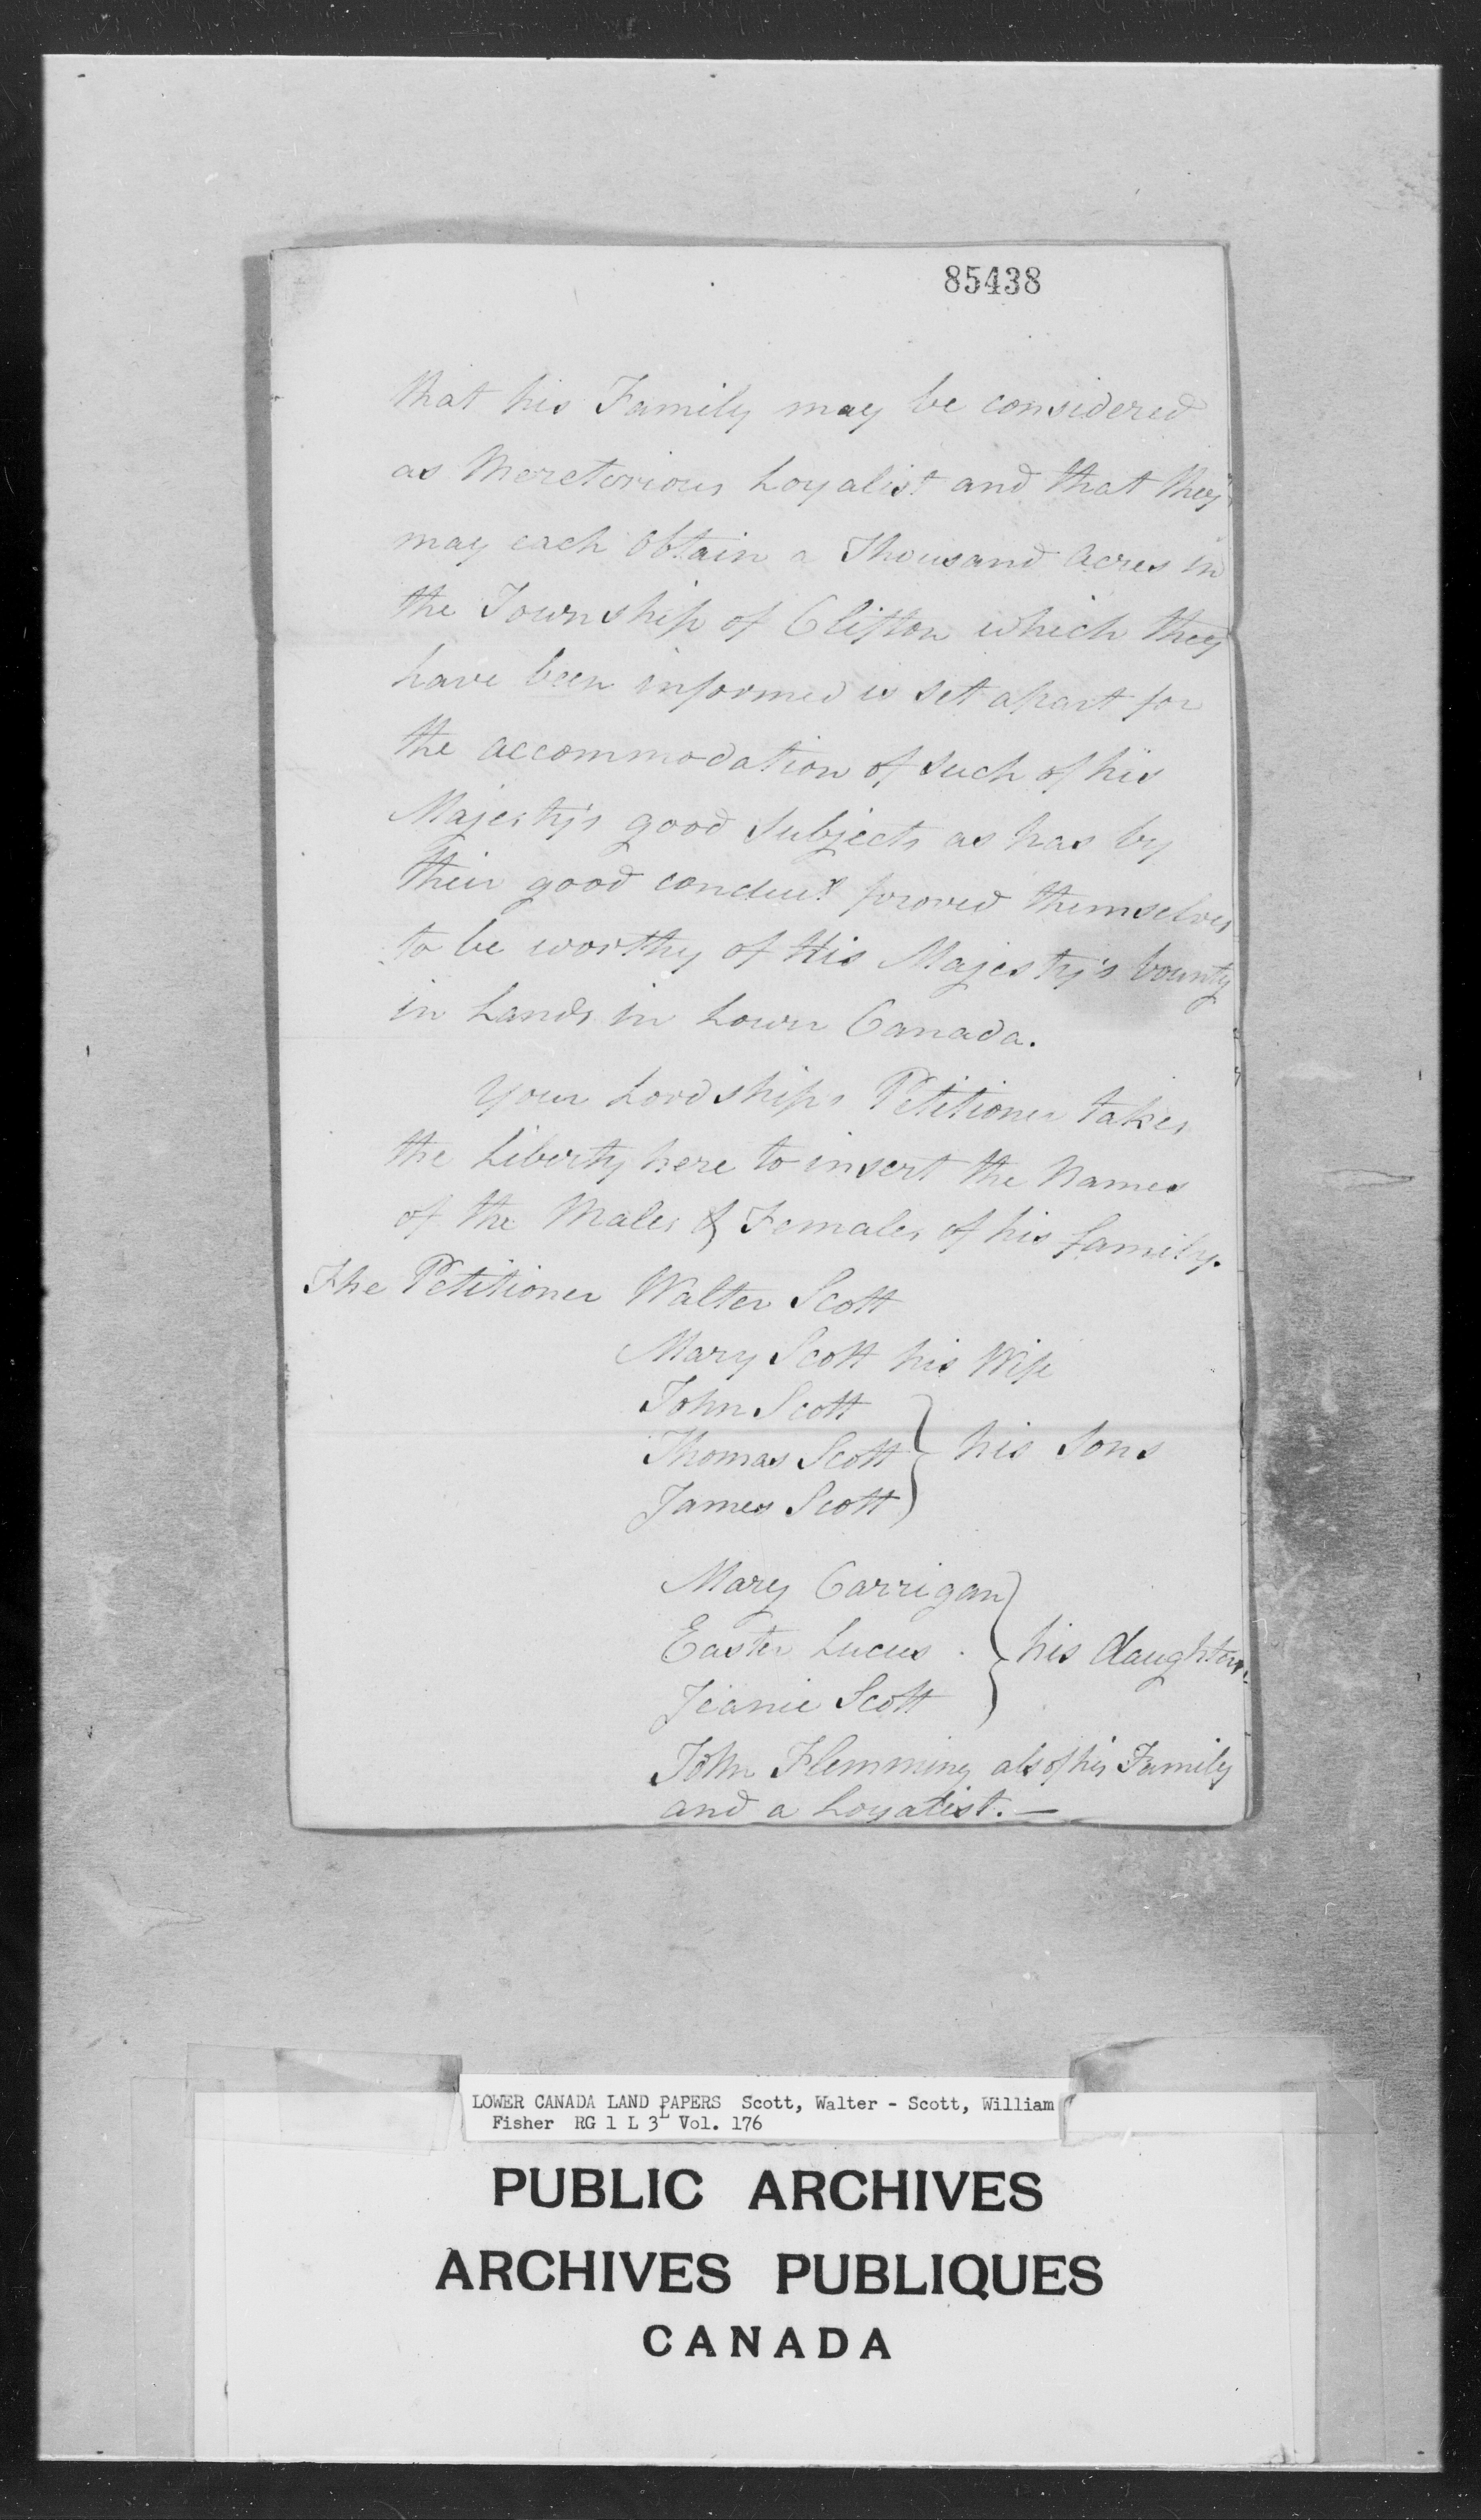 85438
that his Family may be considered
as Meretorious Loyalist and that they
may each obtain a Thousand Acres in
the Township of Clifton which they
have been informed is set apart for
the accommodation of such of his
Majesty's good Subjects as has by
their good conduct proved themselves
to be worthy of His Majesty's bounty
in Lands in Lower Canada.
Your Lordships Petitioner takes
the Liberty here to insert the Names
of the Males & Females of his family.
The Petitioner Walter Scott
Mary Scott his Wife
John Scott
Thomas Scott } his Sons
James Scott
Mary Carrigan
Easter Lucus } his daughters
Jeanie Scott
John Flemming als of his Family
and a Loyalist. —
LOWER CANADA LAND PAPERS Scott, Walter - Scott, William
Fisher RG 1 L 3L Vol. 176
PUBLIC ARCHIVES
ARCHIVES PUBLIQUES
CANADA